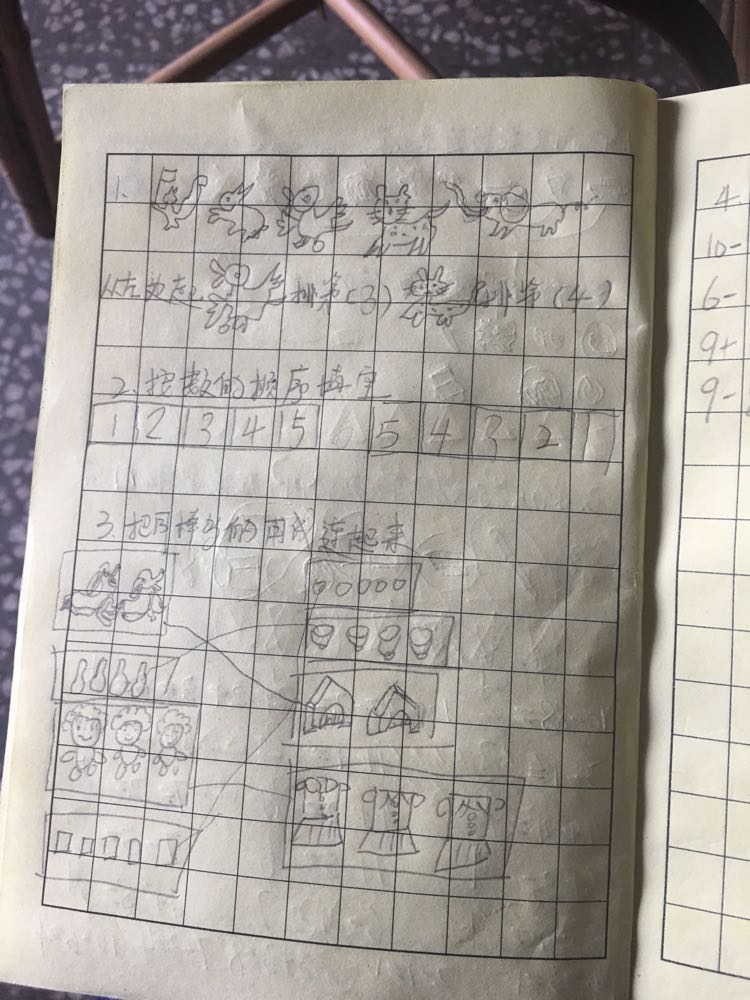 1.
从左边起, 排第(3) 排第(4)
2. 按数的顺序填空
1 2 3 4 5 6 5 4 3 2 1
3. 把同样多的用线连起来
4-
10-
6-
9+
9-